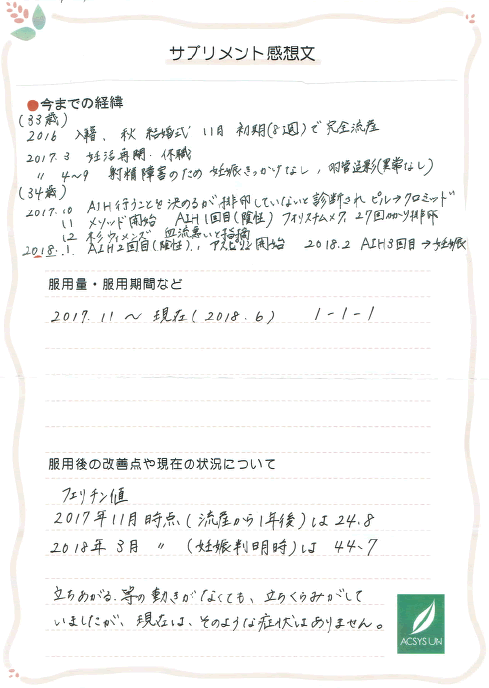 サプリメント感想文
●今までの経緯
(33歳)
2016 入籍、秋 結婚式 11月 初期(8週)で完全流産
2017.3 妊活再開・休職
〃 4~9 射精障害のため 妊娠きっかけなし, 卵管造影(異常なし)
(34歳)
2017.10 AIH行うことを決めるが排卵していないと診断され ピル→クロミッド
11 メソッド開始 AIH1回目(陰性) フォリスチム 27回かかり排卵
12 杉ウィメンズ 血流悪いと指摘
2018.1. AIH2回目(陰性), アスピリン開始 2018.2 AIH3回目→妊娠
服用量・服用期間など
2017.11 ~ 現在(2018.6) 1-1-1
服用後の改善点や現在の状況について
フェリチン値
2017年11月時点(流産から1年後)は24.8
2018年3月 〃 (妊娠判明時)は 44.7
立ちあがる.等の動きがなくても、立ちくらみがして
いましたが、現在は、そのような症状はありません。
ACSYS UN